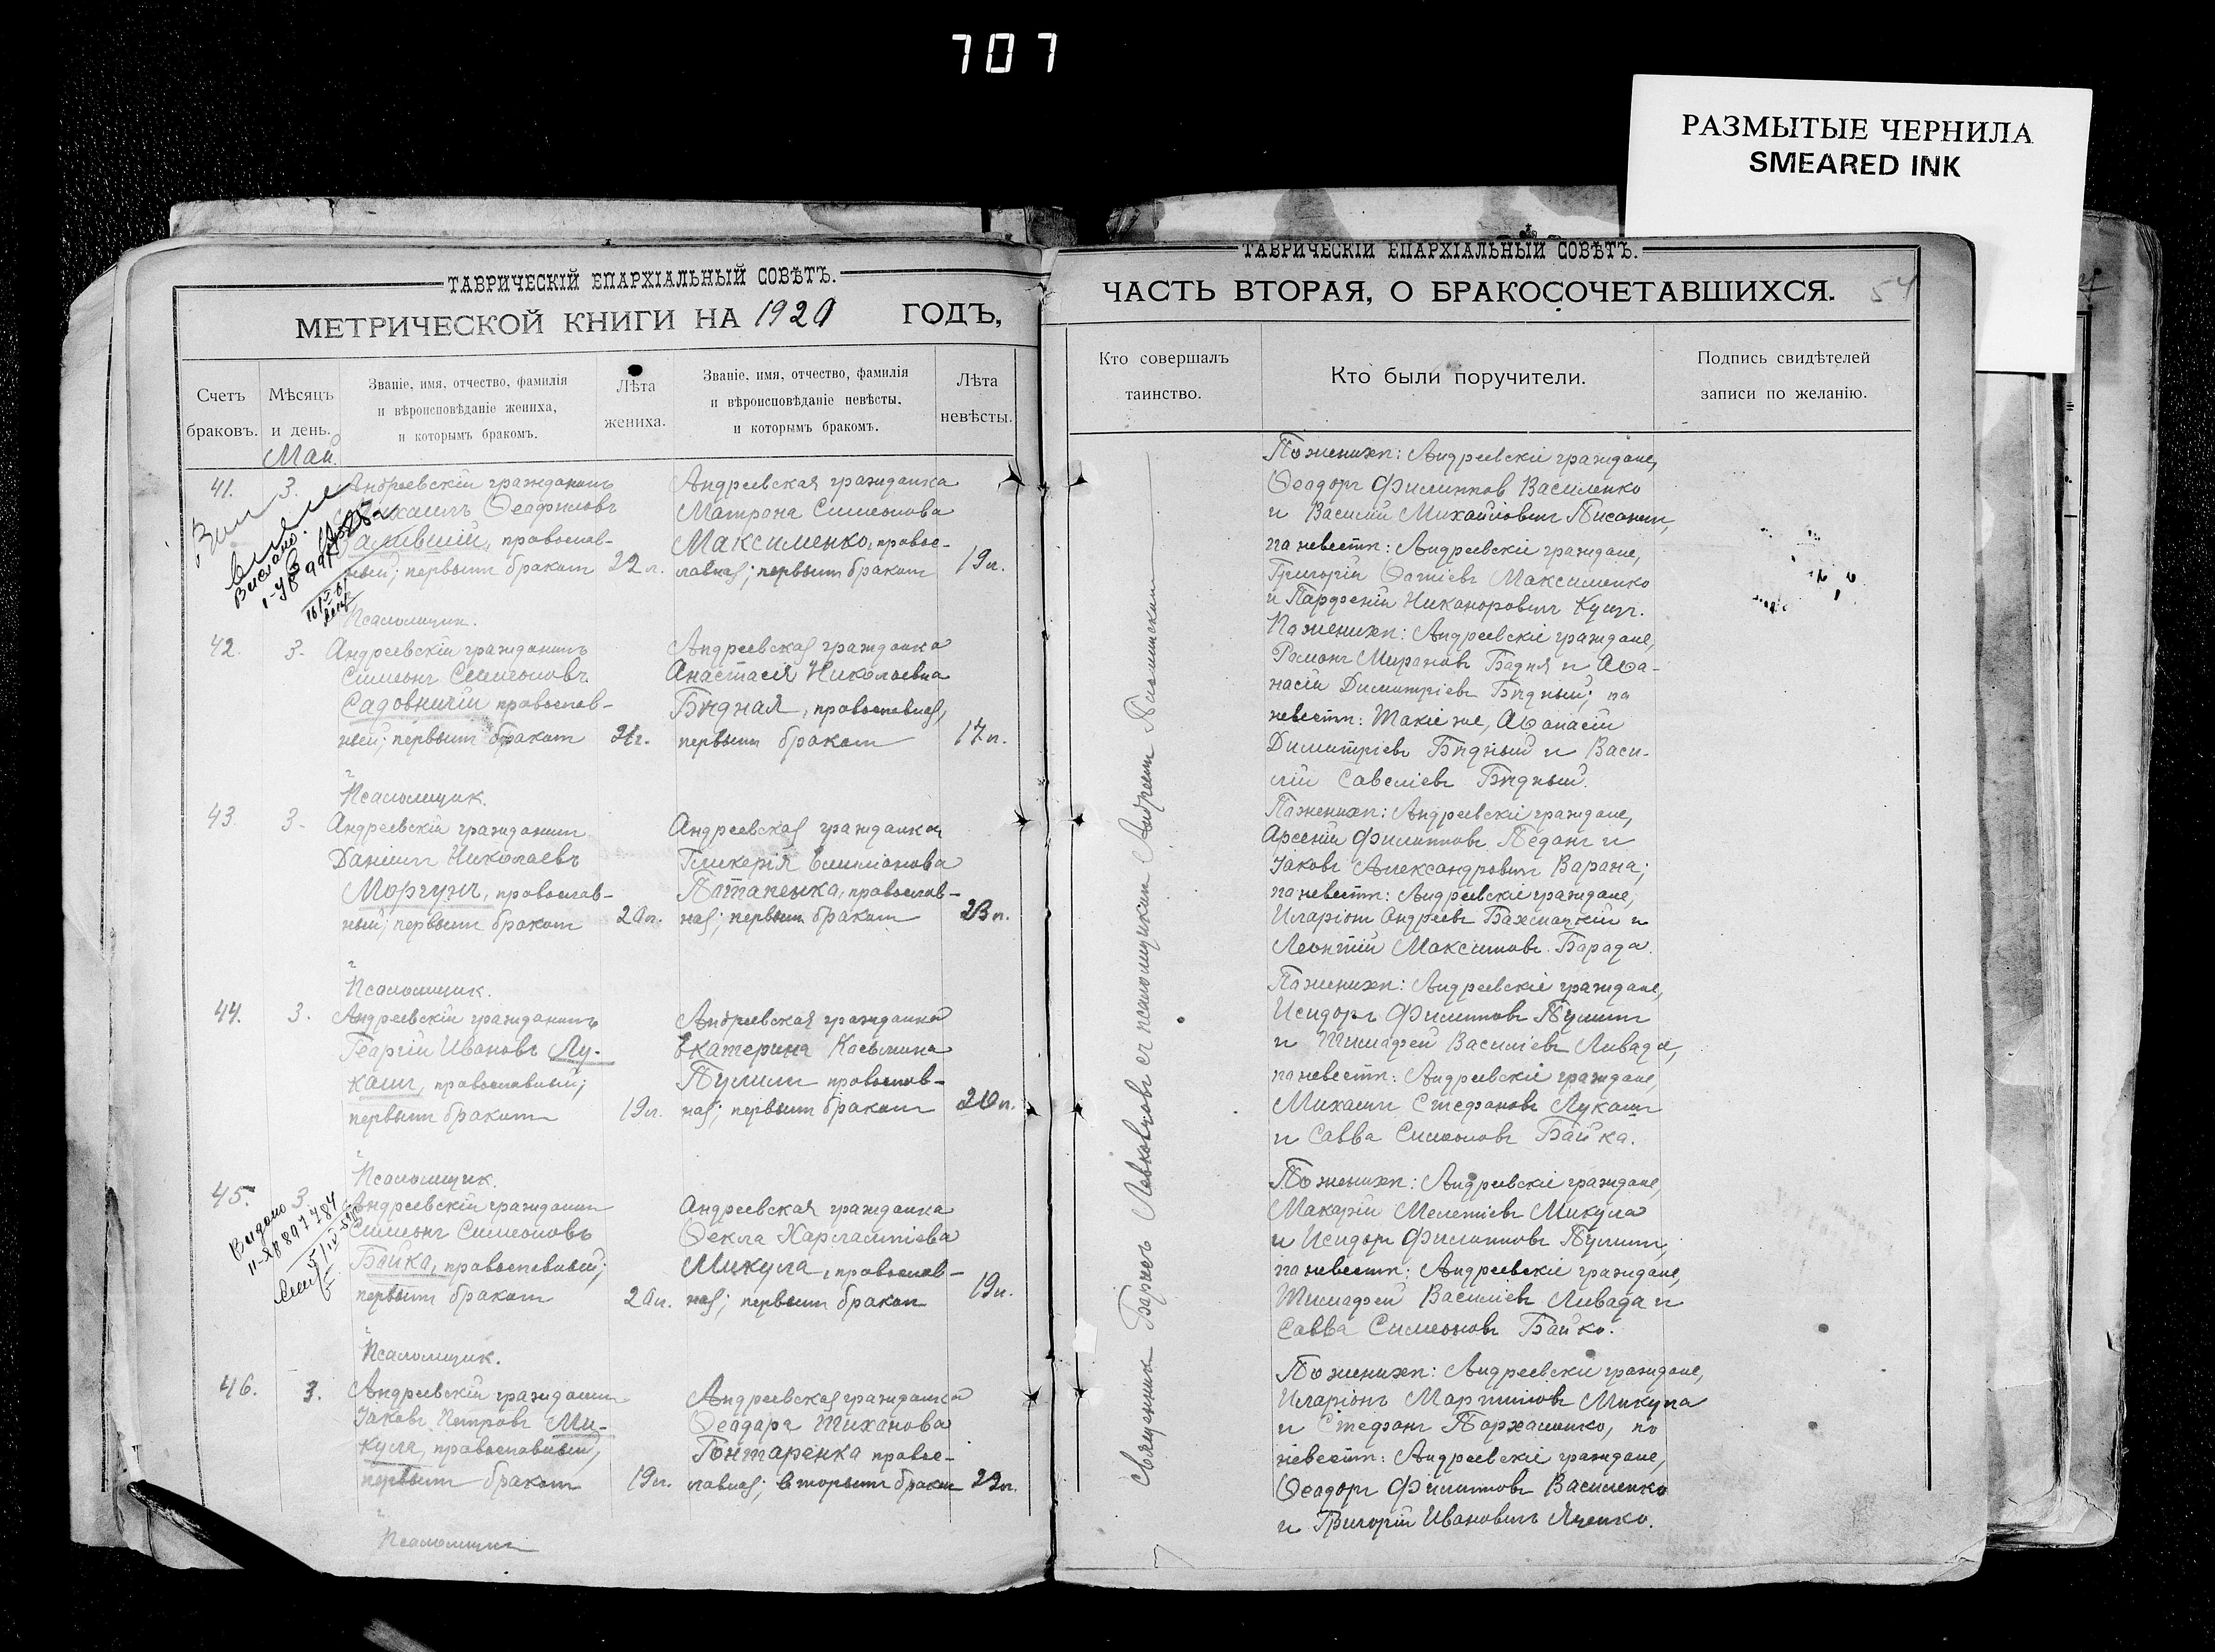 707
РАЗМЫТЫЕ ЧЕРНИЛА
SMEARED INK
ТАВРИЧЕСКІЙ ЕПАРХІАЛЬНЫЙ СОВѢТЪ.
МЕТРИЧЕСКОЙ КНИГИ НА 1920 ГОДЪ,
Счетъ
браковъ.
Мѣсяцъ
и день.
Званіе, имя, отчество, фамилія
и вѣроисповѣданіе жениха,
и которымъ бракомъ.
Лѣта
жениха.
Званіе, имя, отчество, фамилія
и вѣроисповѣданіе невѣсты,
и которымъ бракомъ.
Лѣта
невѣсты.
Май
41.
3.
Андреевскій гражданинъ
Михаилъ Ѳеофиловъ
православ-
ный; первымъ бракомъ
22 л.
Андреевская гражданка
Матрона Симеонова
Максименко, правос-
лавная; первымъ бракомъ
19 л.
Псаломщик.
42.
3.
Андреевскій гражданинъ
Симеонъ Симеоновъ
Садовничій православ-
ный; первымъ бракомъ
21 г.
Андреевская гражданка
Анастасія Николаевна
Бѣдная, православная,
первымъ бракомъ
17 л.
Псаломщик.
43.
3.
Андреевскій гражданинъ
Даніилъ Николаевъ
Моргунъ, православ-
ный; первымъ бракомъ
20 л.
Андреевская гражданка
Гликерія Емиліанова
Потапенка, православ-
ная; первымъ бракомъ
23 л.
Псаломщик.
44.
3.
Андреевскій гражданинъ
Георгій Ивановъ Лу-
кашъ, православный;
первымъ бракомъ
19 л.
Андреевская гражданка
Екатерина Косьмина
православ-
ная; первымъ бракомъ
20 л.
Псаломщик.
45.
3.
Видано
Андреевскій гражданинъ
Симеонъ Симеоновъ
Байка, православный;
первымъ бракомъ
20 л.
Андреевская гражданка
Ѳекла Харлампіева
Микула, православ-
ная; первымъ бракомъ
19 л.
Псаломщик.
46.
3.
Андреевскій гражданинъ
Іаковъ Петровъ Ми-
кула, православный,
первымъ бракомъ
19 л.
Андреевская гражданка
Ѳеодора Тиханова
Гонтаренка правос-
лавная; вторымъ бракомъ
22 л.
Псаломщик
ТАВРИЧЕСКІЙ ЕПАРХІАЛЬНЫЙ СОВѢТЪ.
ЧАСТЬ ВТОРАЯ, О БРАКОСОЧЕТАВШИХСЯ.
54
Кто совершалъ
таинство.
Кто были поручители.
Подпись свидѣтелей
записи по желанію.
Священникъ съ псаломщикомъ Андреемъ
По женихѣ: Андреевскіе граждане,
Ѳеодоръ Филипповъ Василенко
и Василій Михайловичъ
по невѣстѣ: Андреевскіе граждане,
Григорій Ѳотіевъ Максименко
и Парфеній Никаноровичъ Кущъ.
По женихѣ: Андреевскіе граждане,
Бадня и Аѳа-
насій Димитріевъ Бѣдный; по
невѣстѣ: такіе же, Аѳанасій
Димитріевъ Бѣдный и Васи-
лій Савеліевъ Бѣдный.
По женихѣ: Андреевскіе граждане,
Арсеній Филипповъ Педанъ и
Іаковъ Александровичъ Варана;
по невѣстѣ: Андреевскіе граждане,
Иларіонъ Андреевъ Бахмацкій и
Леонтій Максимовъ Барада.
По женихѣ: Андреевскіе граждане,
Исидоръ Филипповъ
и Тимофей Васильевъ Ливада,
по невѣстѣ: Андреевскіе граждане,
Михаилъ Стефановъ Лукашъ
и Савва Симеоновъ Байка.
По женихѣ: Андреевскіе граждане,
Макарій Мелетіевъ Микула
и Исидоръ Филипповъ
по невѣстѣ: Андреевскіе граждане,
Тимофей Васильевъ Ливада и
Савва Симеоновъ Байко.
По женихѣ: Андреевскіе граждане,
Иларіонъ Мартиновъ Микула
и Стефанъ Пархоменко, по
невѣстѣ: Андреевскіе граждане,
Ѳеодоръ Филипповъ Василенко
и Григорій Ивановичъ